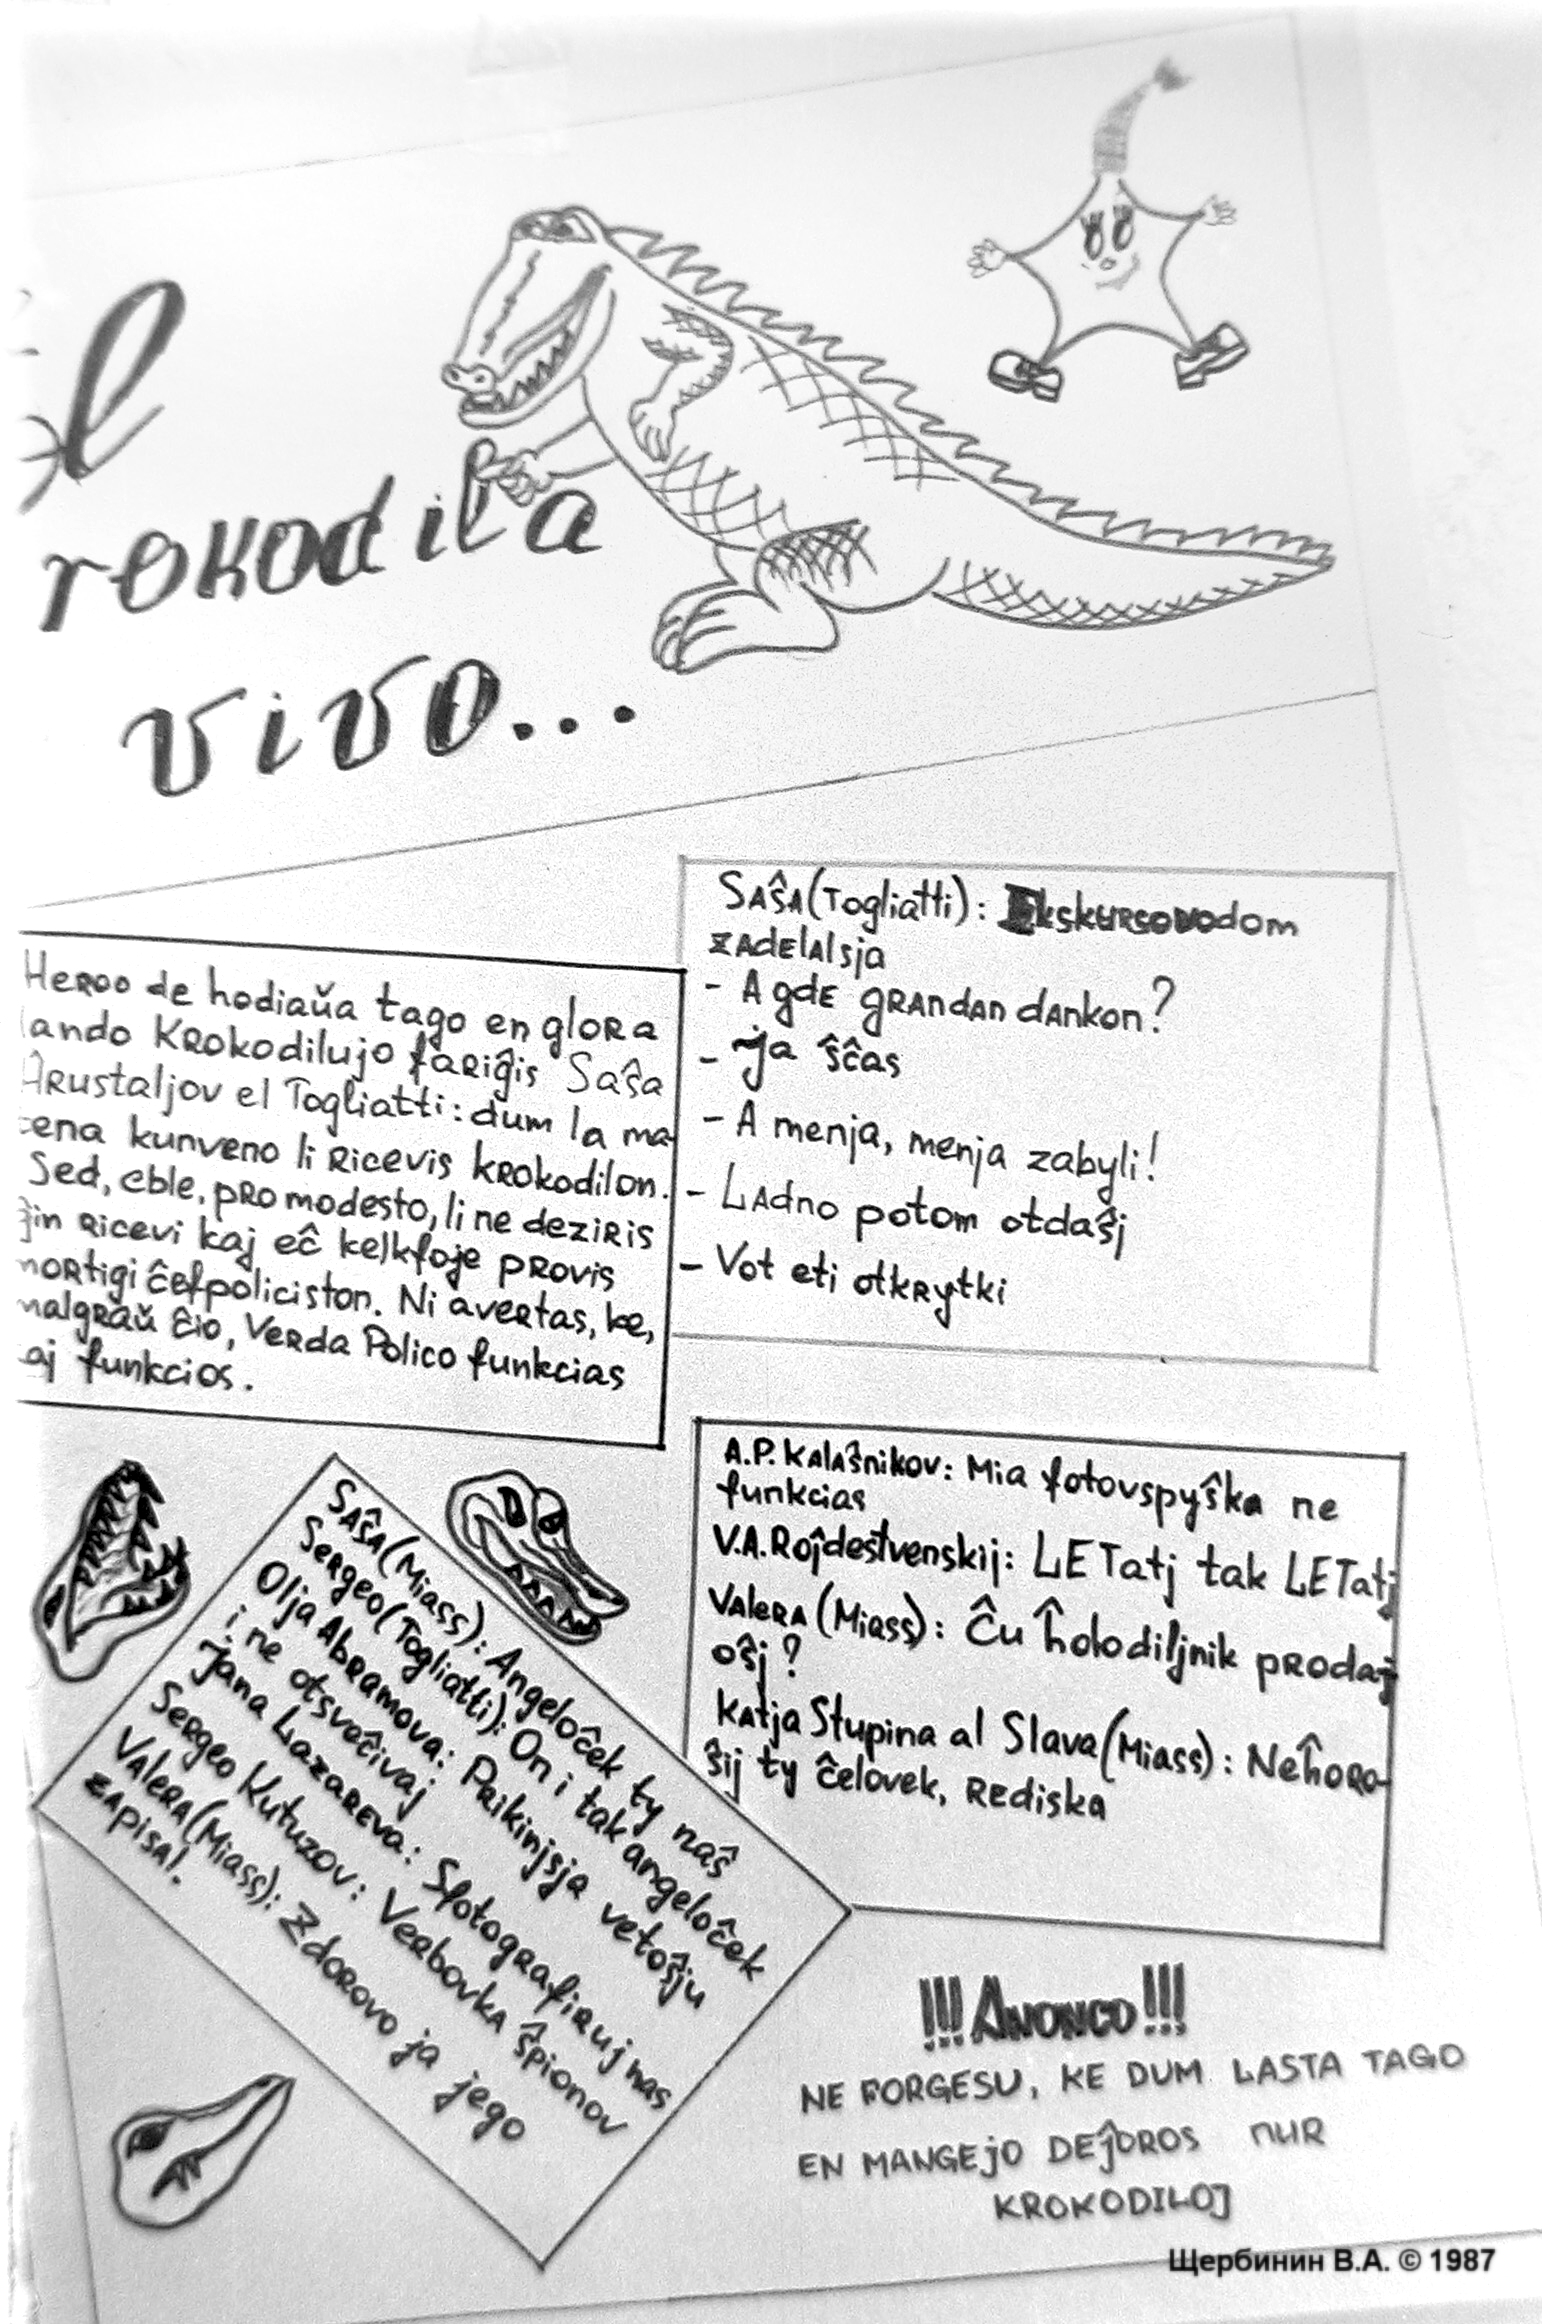 El
rokodila
vivo...
Heroo de hodiaŭa tago en glora
lando Krokodilujo fariĝis Saŝa
Arustaljov el Togliatti: dum la ma-
tena kunveno li ricevis krokodilon.
Sed, eble, pro modesto, li ne deziris
ĝin ricevi kaj eĉ kelkfoje provis
mortigi ĉefpoliciston. Ni avertas, ke,
malgraŭ ĉio, Verda Polico funkcias
kaj funkcios.
Saŝa (Togliatti): Ekskursovodom
zadelalsja
- A gde grandan dankon?
- Ja ŝĉas
- A menja, menja zabyli!
- Ladno potom otdaŝj
- Vot eti otkrytki
A.P. Kalaŝnikov: Mia fotovspyŝka ne
funkcias
V.A. Roĵdestvenskij: LETatj tak LETatj
Valera (Miass): Ĉu ĥolodiljnik prodaj
oŝj?
Katja Stupina al Slava (Miass): Neĥoro-
ŝij ty ĉelovek, rediska
Saŝa (Miass): Angeloĉek ty naŝ
Sergeo (Togliatti): On i tak angeloĉek
Olja Abramova: Prikinjsja vetoŝju
i ne otsveĉivaj
Jana Lazareva: Sfotografiruj nas
Sergeo Kutuzov: Verbovka ŝpionov
Valera (Miass): Zdorovo ja jego
zapisal.
!!! Anonco !!!
NE FORGESU, KE DUM LASTA TAGO
EN MANGEJO DEĴOROS NUR
KROKODILOJ
Щербинин В.А. © 1987